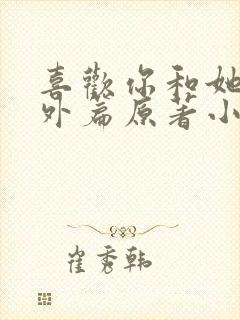 喜歡你和她
外篇原著小
崔秀韩